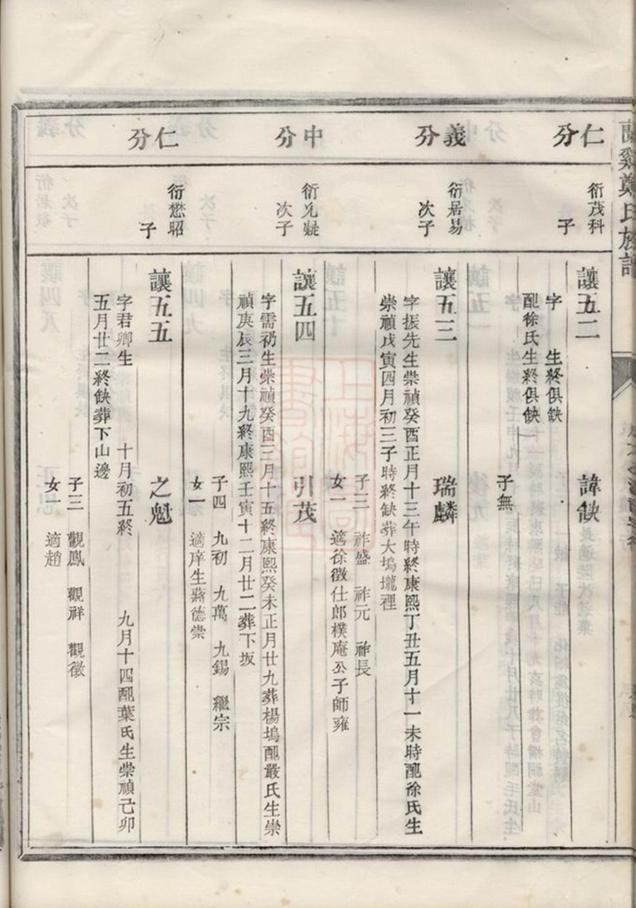 蘭谿鄭氏族譜
仁分
衍茂科
子
讓五二 諱缺
字 生終俱缺
配徐氏生終俱缺
子無
義分
衍居易
次子
讓五三 瑞麟
字振先生崇禎癸酉正月十三午時終康熙丁丑五月十一未時配徐氏生
崇禎戊寅四月初三子時終缺葬大塢壠裡
子三 祚盛 祚元 祚長
女二 適徐徵仕郎樸庵公子師雍
中分
衍允凝
次子
讓五四 引茂
字需礽生崇禎癸酉三月十五終康熙癸未正月廿九葬楊塢配嚴氏生崇
禎庚辰三月十九終康熙壬寅十二月廿二葬下坂
子四 九初 九萬 九錫 繼宗
女一 適庠生蔣德崇
仁分
衍懋昭
子
讓五五 之魁
字君卿生 十月初五終 九月十四配葉氏生崇禎己卯
五月廿二終缺葬下山邊
子三 觀鳳 觀祥 觀徵
女一 適趙